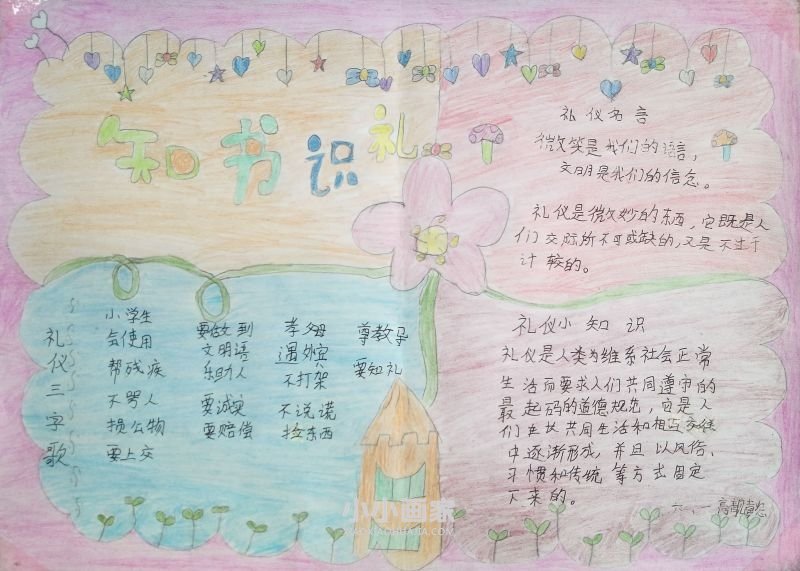 知书识礼
礼仪名言
微笑是我们的语言，
文明是我们的信念。
礼仪是微妙的东西，它既是人
们交际所不可或缺的，又是不生于
计较的。
礼仪三字歌
小学生 要做到 孝父母 尊教导
气使用 文明语 遇外宾 要知礼
帮残疾 乐助人 不打架
不骂人 要诚实 不说谎
损公物 要赔偿 捡东西
要上交
礼仪小知识
礼仪是人类为维系社会正常
生活而要求人们共同遵守的
最起码的道德规范，它是人
们在长共同生活和相互交往
中逐渐形成，并且以风俗、
习惯和传统等方式固定
下来的。
六、一
小小画家